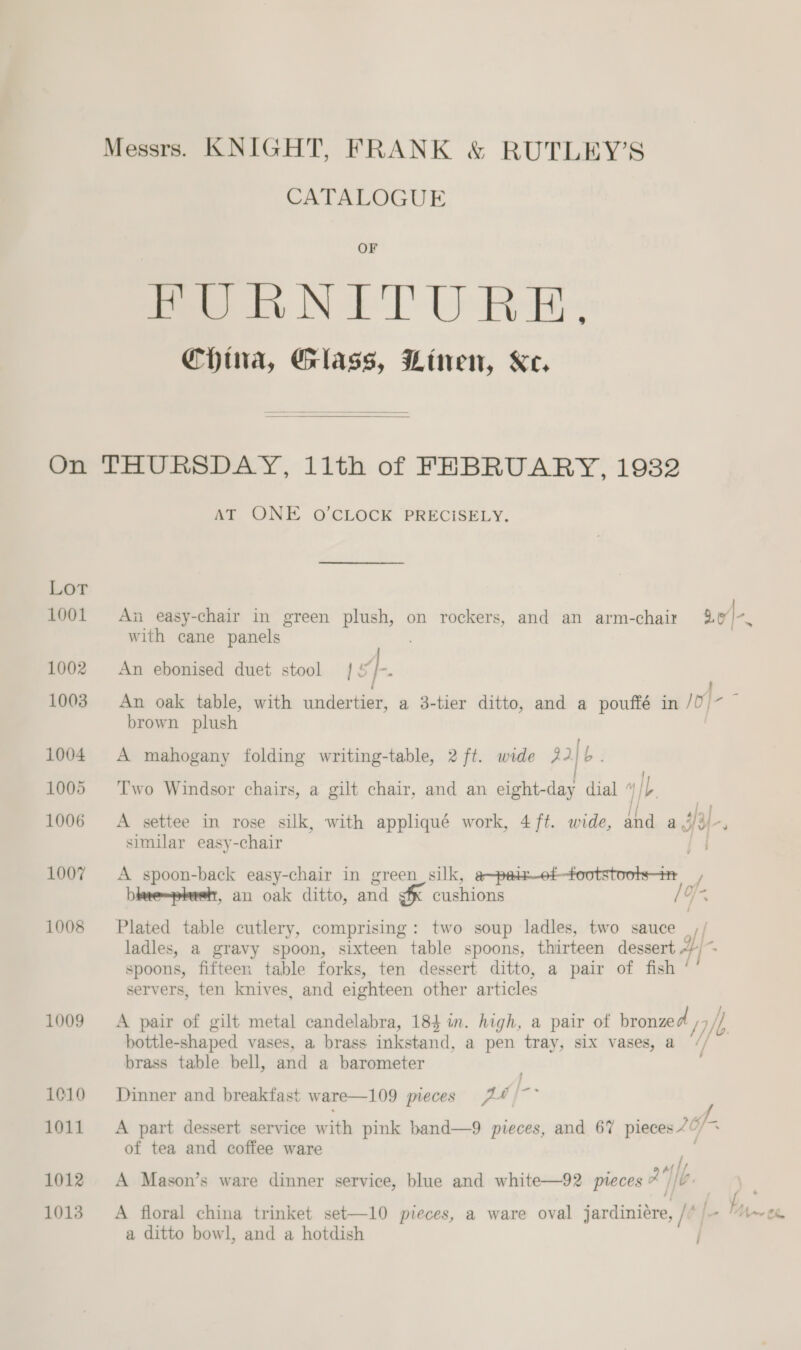 Messrs. KNIGHT, FRANK & RUTLEY'S
CATALOGUE
OF
FURNITURE,
China, Glass, Linen, &c.
On THURSDAY, 11th of FEBRUARY, 1932
AT ONE O'CLOCK PRECISELY.
LOT
1001 An easy-chair in green plush, on rockers, and an arm-chair 20/-
with cane panels
1002 An ebonised duet stool 15/-.
1003 An oak table, with undertier, a 3-tier ditto, and a pouffé in 10/-
brown plush
1004 A mahogany folding writing-table, 2 ft. wide 22/6.
1005 Two Windsor chairs, a gilt chair, and an eight-day dial
1006 A settee in rose silk, with appliqué work, 4 ft. wide, and a
similar easy-chair
1007 A spoon-back easy-chair in green silk, a pair of footstools in
blue plush, an oak ditto, and cushions 10/-
1008 Plated table cutlery, comprising: two soup ladles, two sauce
ladles, a gravy spoon, sixteen table spoons, thirteen dessert
spoons, fifteen table forks, ten dessert ditto, a pair of fish
servers, ten knives, and eighteen other articles
1009 A pair of gilt metal candelabra, 18½ in. high, a pair of bronzed
bottle-shaped vases, a brass inkstand, a pen tray, six vases, a
brass table bell, and a barometer
1010 Dinner and breakfast ware—109 pieces
1011 A part dessert service with pink band—9 pieces, and 67 pieces 20/-
of tea and coffee ware
1012 A Mason's ware dinner service, blue and white—92 pieces
1013 A floral china trinket set—10 pieces, a ware oval jardinière,
a ditto bowl, and a hotdish